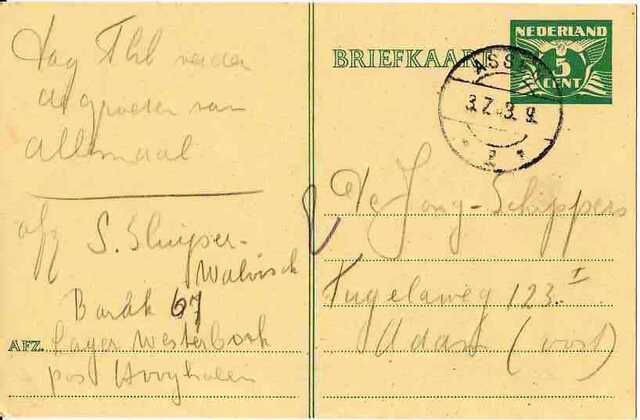 Dag verder
de groeten van
allemaal
afz S. Sluijser-
Walvisch
Barak 67
AFZ. Lager Westerbork
post Hooghalen
BRIEFKAART
NEDERLAND
5
CENT
ASSEN
de Jong-Schippers
Tugelaweg 123 I
A'dam (oost)